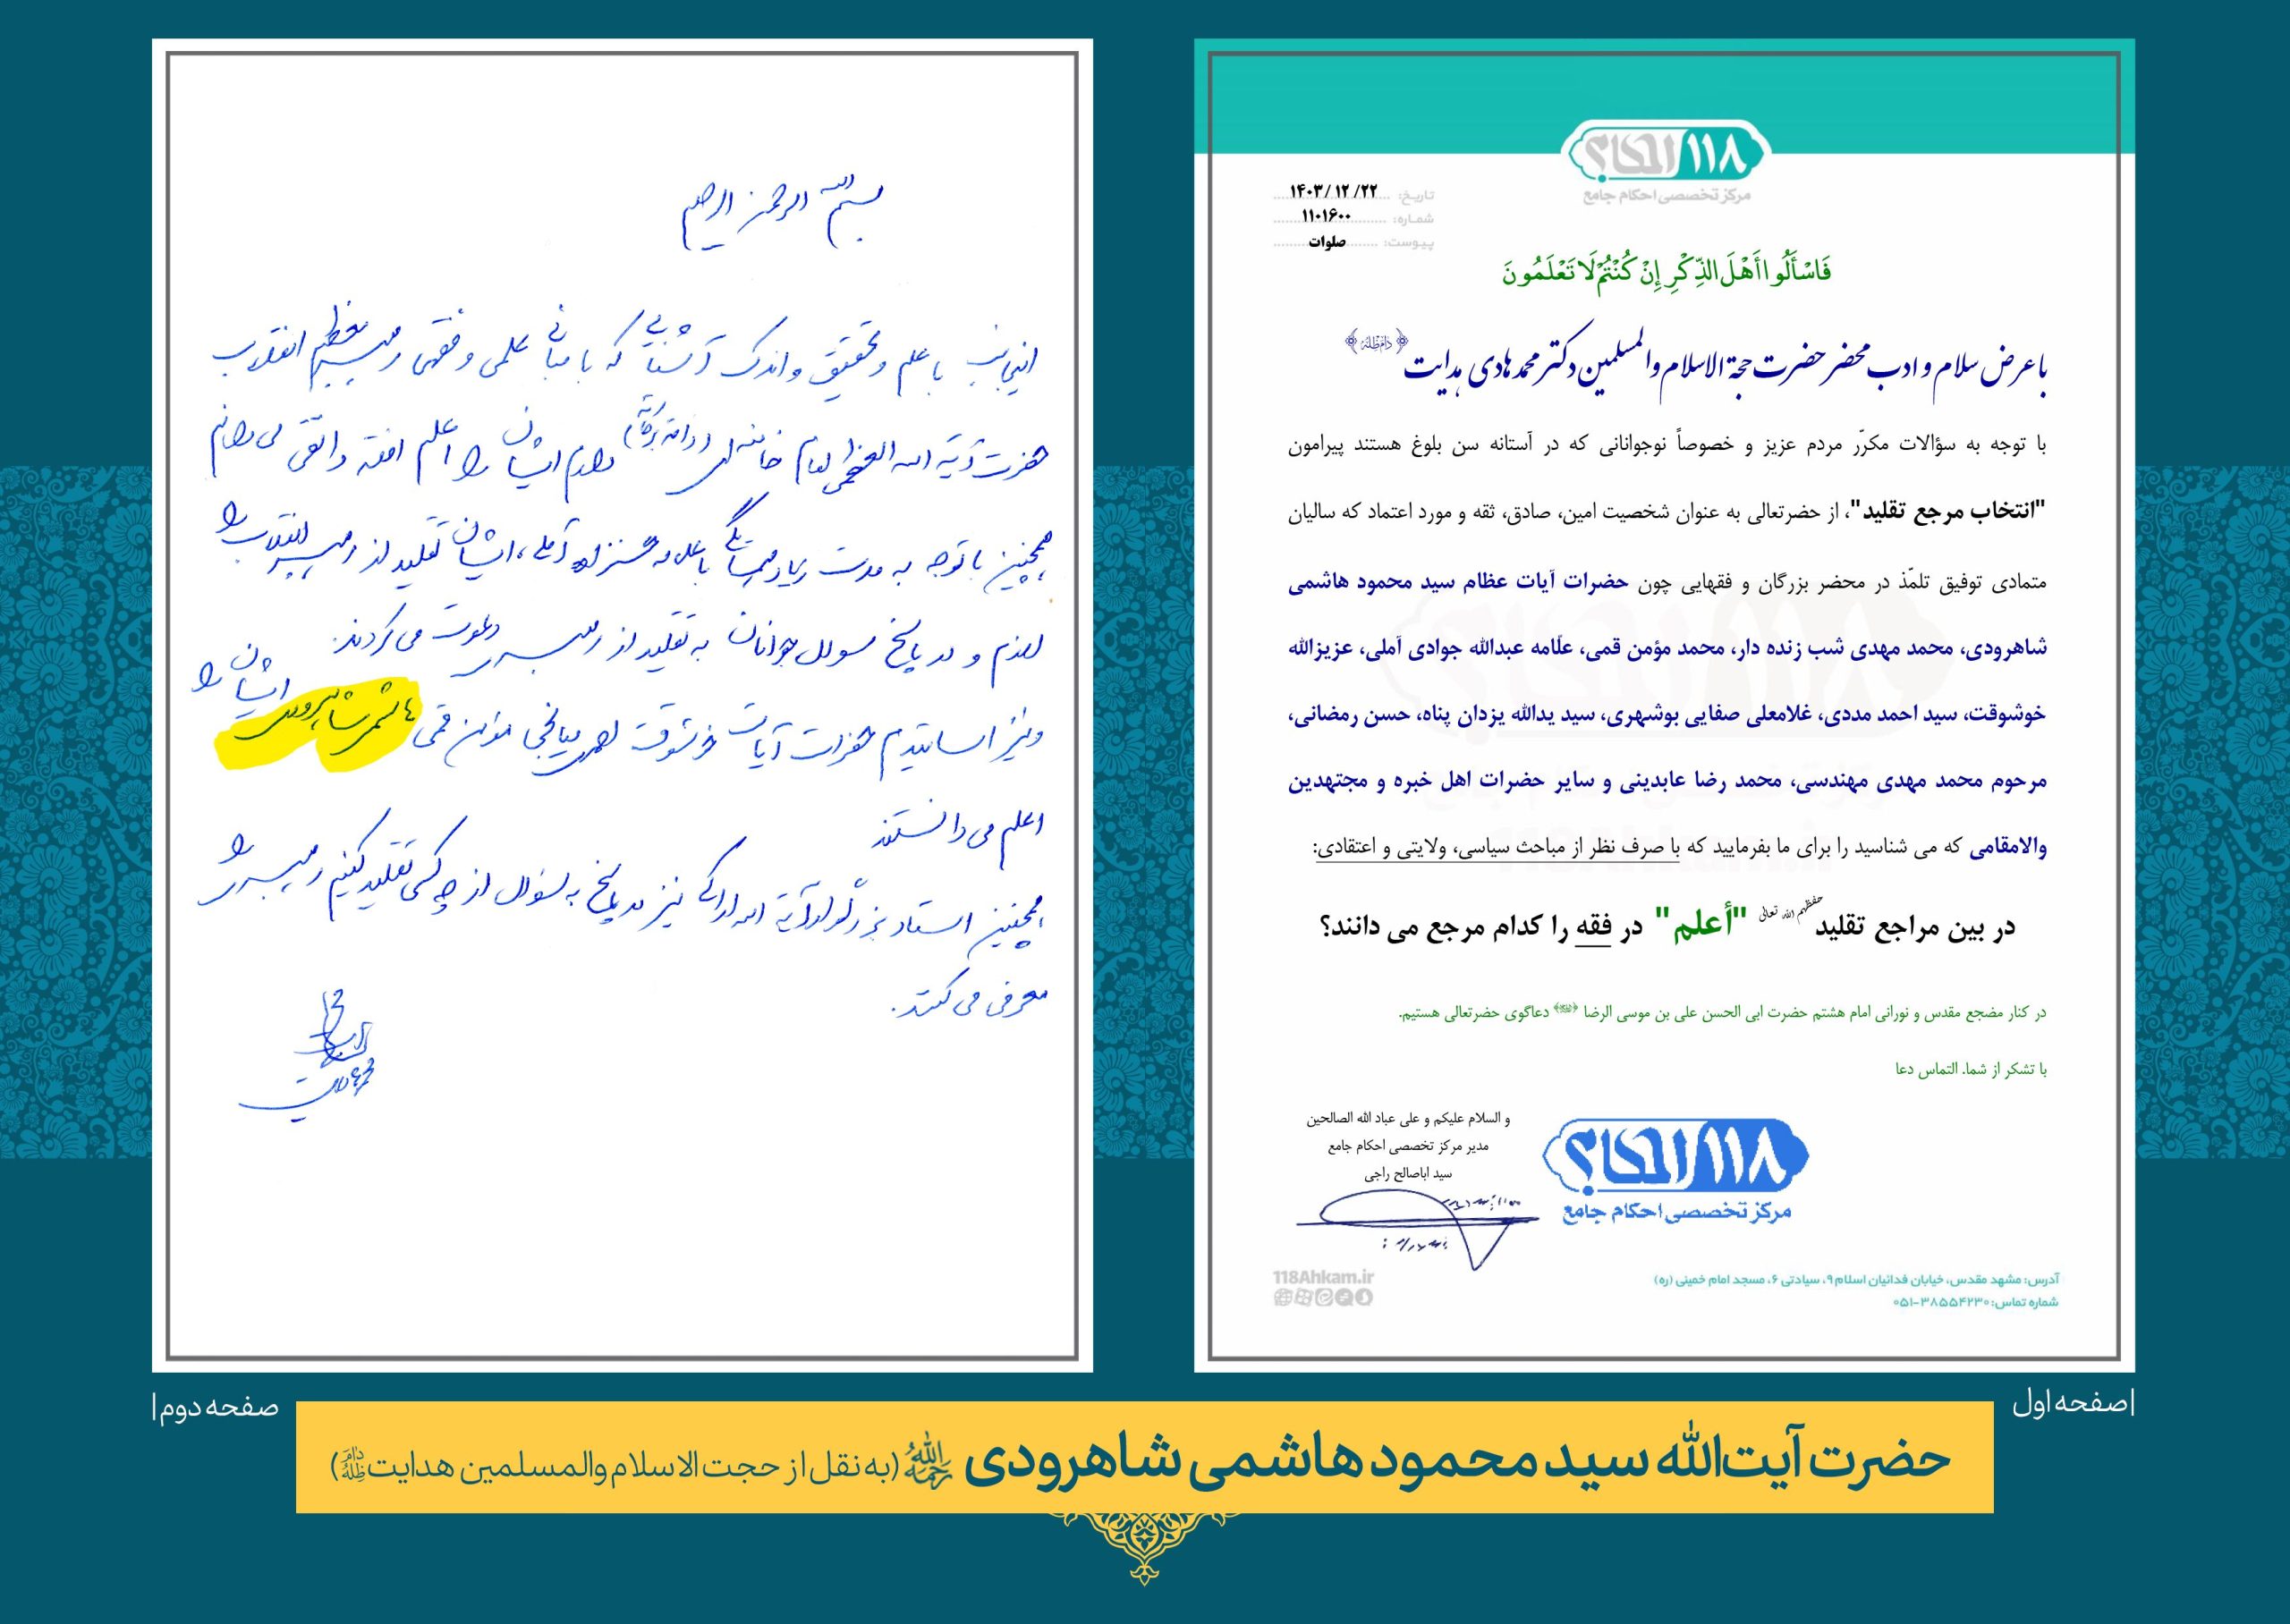 ۱۱۸ احکام
مرکز تخصصی احکام جامع
تاریخ: ۱۴۰۳/۱۲/۲۲
شماره: ۱۱۰۱۶۰۰
پیوست: صلوات
فَاسْأَلُوا أَهْلَ الذِّكْرِ إِنْ كُنْتُمْ لَا تَعْلَمُونَ
با عرض سلام و ادب محضر حضرت حجة الاسلام والمسلمین دکتر محمد هادی هدایت ﴿دام ظله﴾
با توجه به سؤالات مکرّر مردم عزیز و خصوصاً نوجوانانی که در آستانه سن بلوغ هستند پیرامون
"انتخاب مرجع تقلید"، از حضرتعالی به عنوان شخصیت امین، صادق، ثقه و مورد اعتماد که سالیان
متمادی توفیق تلمّذ در محضر بزرگان و فقهایی چون حضرات آیات عظام سید محمود هاشمی
شاهرودی، محمد مهدی شب زنده دار، محمد مؤمن قمی، علّامه عبدالله جوادی آملی، عزیزالله
خوشوقت، سید احمد مددی، غلامعلی صفایی بوشهری، سید یدالله یزدان پناه، حسن رمضانی،
مرحوم محمد مهدی مهندسی، محمد رضا عابدینی و سایر حضرات اهل خبره و مجتهدین
والامقامی که می شناسید را برای ما بفرمایید که با صرف نظر از مباحث سیاسی، ولایتی و اعتقادی:
در بین مراجع تقلید حفظهم الله تعالی "أعلم" در فقه را کدام مرجع می دانند؟
در کنار مضجع مقدس و نورانی امام هشتم حضرت ابی الحسن علی بن موسی الرضا دعاگوی حضرتعالی هستیم.
با تشکر از شما. التماس دعا
و السلام علیکم و علی عباد الله الصالحین
مدیر مرکز تخصصی احکام جامع
سید اباصالح راجی
۱۱۸ احکام
مرکز تخصصی احکام جامع
118Ahkam.ir
آدرس: مشهد مقدس، خیابان فدائیان اسلام ۹، سیادتی ۶، مسجد امام خمینی (ره)
شماره تماس: ۳۸۵۵۴۲۳۰-۰۵۱
|صفحه اول
بسم الله الرحمن الرحیم
اینجانب با علم و تحقیق و اندک آشنایی که با مبانی علمی و فقهی رهبر معظم انقلاب
حضرت آیة الله العظمی امام خامنه ای (دامت برکاته) دارم ایشان را اعلم افقه و اتقی می دانم
همچنین با توجه به مدت زیاد همسایگی با علامه حسن زاده آملی، ایشان تقلید از رهبر انقلاب را
لازم و در پاسخ سوال جوانان به تقلید از رهبری دعوت می کردند.
و نیز اساتیدم حضرات آیات خوشوقت احمدی میانجی مؤمن قمی هاشمی شاهرودی ایشان را
اعلم می دانستند
همچنین استاد بزرگوار آیة الله اراکی نیز در پاسخ به سؤال از چه کسی تقلید کنیم رهبری را
معرفی می کنند.
صفحه دوم|
حضرت آیت‌الله سید محمود هاشمی شاهرودی رحمه الله (به نقل از حجت الاسلام والمسلمین هدایت دام ظله)